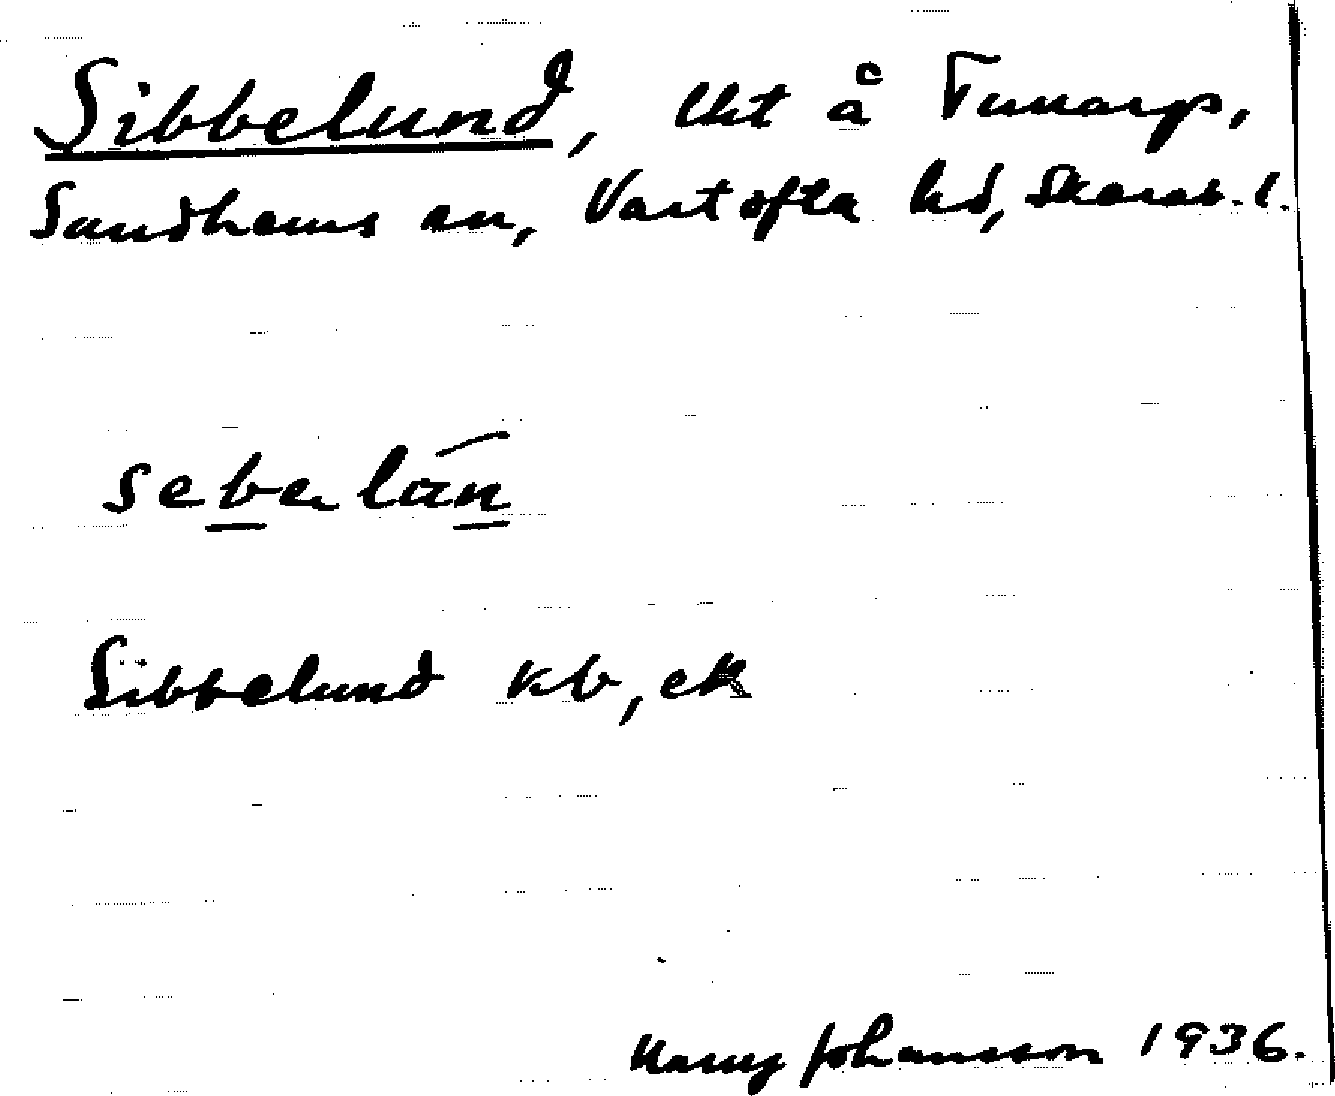 Sibbelund, lht å Tunarp,
Sandhems sn, Vartofta hd, Skarab. l.
sebelán
Sibbelund kb, ek
Harry Johansson 1936.